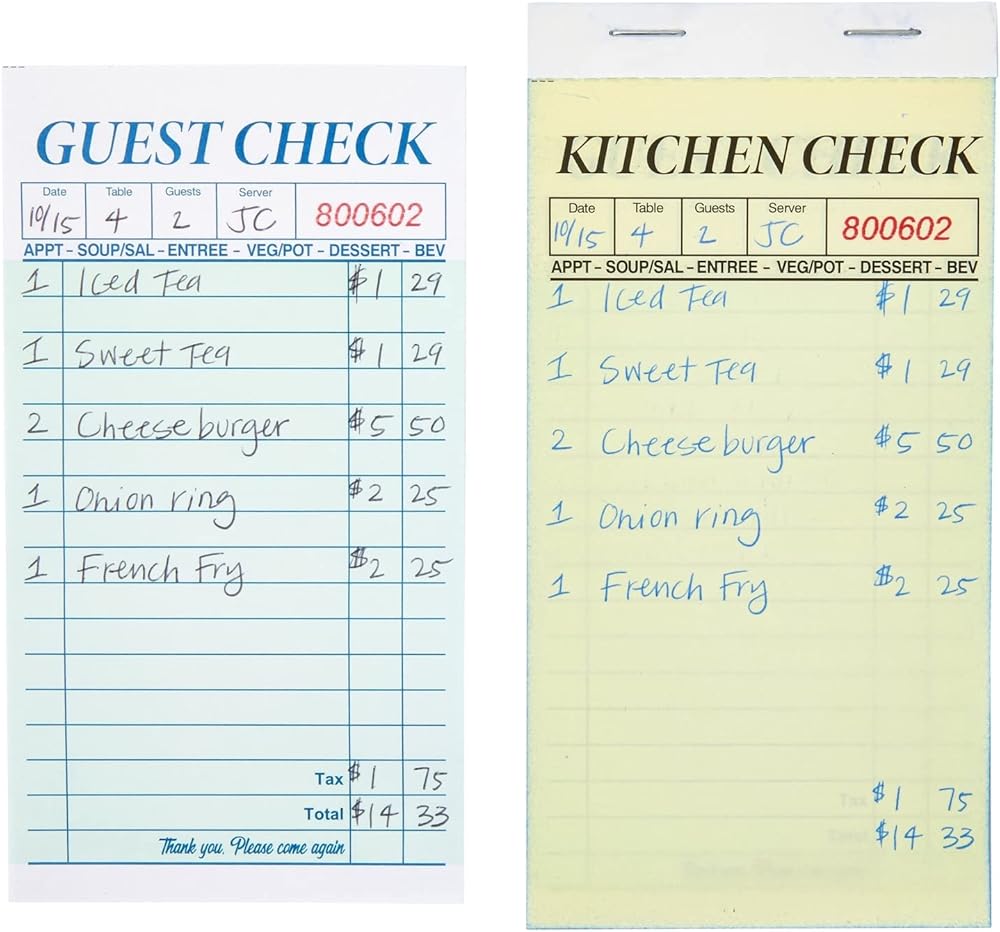 GUEST CHECK
Date Table Guests Server
10/15 4 2 JC 800602
APPT - SOUP/SAL - ENTREE - VEG/POT - DESSERT - BEV
1 Iced Tea $1 29
1 Sweet Tea $1 29
2 Cheeseburger $5 50
1 Onion ring $2 25
1 French Fry $2 25
Tax $1 75
Total $14 33
Thank you. Please come again
KITCHEN CHECK
Date Table Guests Server
10/15 4 2 JC 800602
APPT - SOUP/SAL - ENTREE - VEG/POT - DESSERT - BEV
1 Iced Tea $1 29
1 Sweet Tea $1 29
2 Cheeseburger $5 50
1 Onion ring $2 25
1 French Fry $2 25
Tax $1 75
Total $14 33